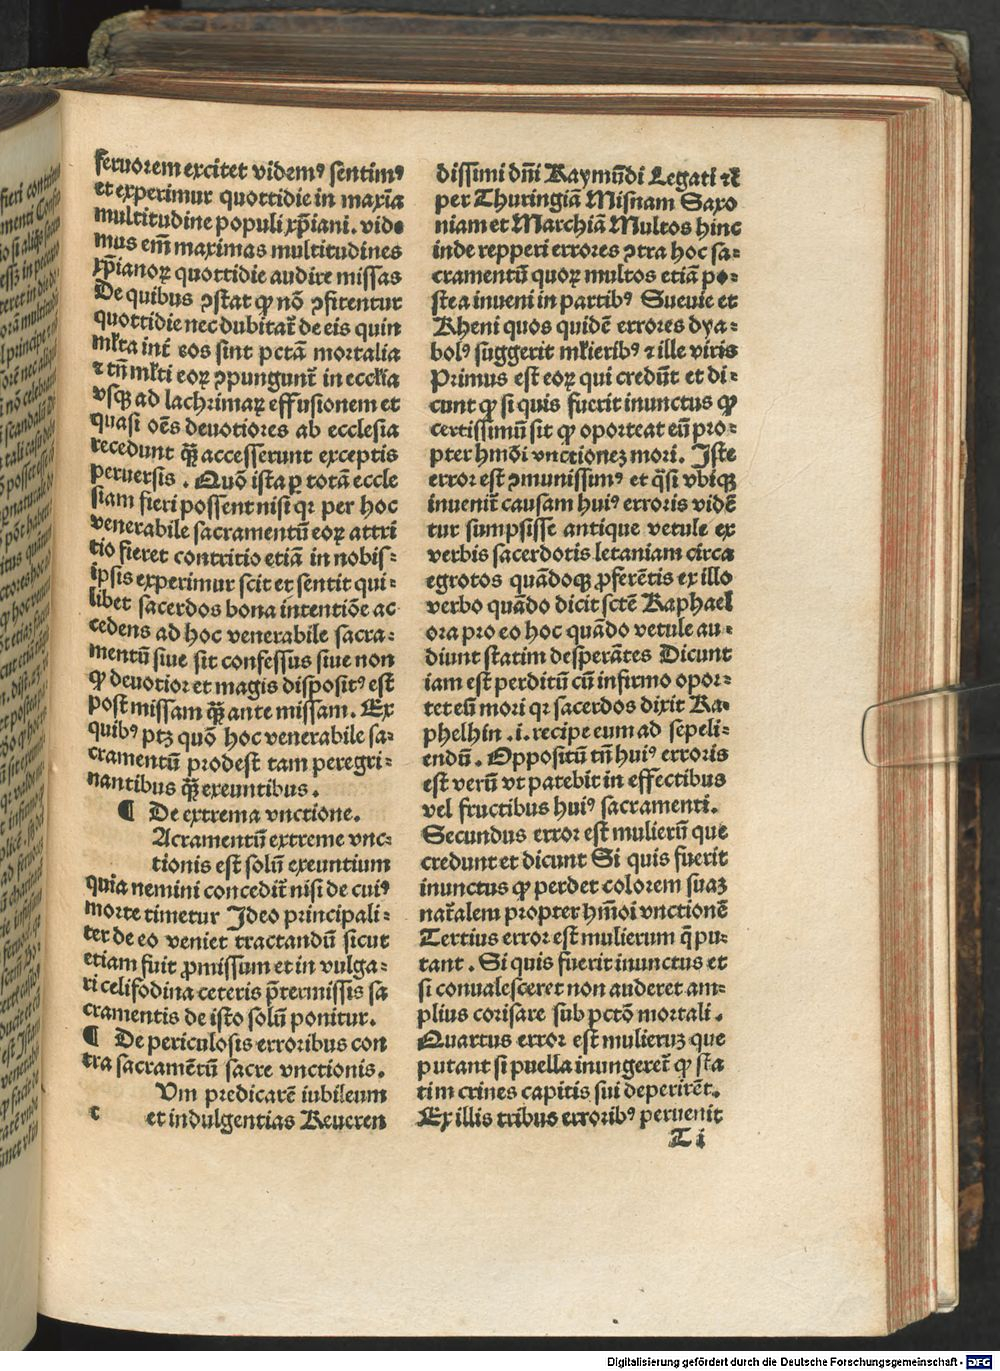 feruorem excitet videmꝰ sentimꝰ
et experimur quottidie in maxīa
multitudine populi xp̄iani. vide
mus em̄ maximas multitudines
xp̄ianoꝝ quottidie audire missas
De quibus ꝯstat ꝙ nō ꝯfitentur
quottidie nec dubitat᷑ de eis quin
ml̓ta int̄ eos sint pctā mortalia
⁊ tn̄ ml̓ti eoꝝ ꝯpungunt᷑ in eccl̓ia
vsqꝫ ad lachrimaꝝ effusionem et
quasi oēs deuotiores ab ecclesia
recedunt qꝫ̄ accesserunt exceptis
peruersis. Quō ista ꝑ totā eccle
siam fieri possent nisi qꝛ per hoc
venerabile sacramentū eoꝝ attri
tio fieret contritio etiā in nobis⸗
ipsis experimur scit et sentit qui⸗
libet sacerdos bona intentiōe ac
cedens ad hoc venerabile sacra⸗
mentū siue sit confessus siue non
ꝙ deuotior et magis dispositꝰ est
post missam qꝫ̄ ante missam. Ex
quibꝰ ptꝫ quō hoc venerabile sa⸗
cramentū prodest tam peregri⸗
nantibus qꝫ̄ exeuntibus.
¶ De extrema vnctione.
Acramentū extreme vnc⸗
tionis est solū exeuntium
quia nemini concedit᷑ nisi de cuiꝰ
morte timetur Ideo principali⸗
ter de eo veniet tractandū sicut
etiam fuit ꝓmissum et in vulga⸗
ri celifodina ceteris p̄termissis sa
cramentis de isto solū ponitur.
¶ De periculosis erroribus con
tra sacramētū sacre vnctionis.
Vm predicarē iubileum
c et indulgentias Reueren
dissimi dn̄i Raymūdi Legati ⁊c̄
per Thuringiā Misnam Saxo
niam et Marchiā Multos hinc
inde repperi errores ꝯtra hoc sa⸗
cramentū quoꝝ multos etiā po⸗
stea inueni in partibꝰ Sueuie et
Rheni quos quidē errores dya⸗
bolꝰ suggerit ml̓ieribꝰ ⁊ ille viris
Primus est eoꝝ qui credūt et di⸗
cunt ꝙ si quis fuerit inunctus ꝙ
certissimū sit ꝙ oporteat eū pro⸗
pter hmōi vnctionez mori. Iste
error est ꝯmunissimꝰ et q̄si vbiqꝫ
inuenit᷑ causam huiꝰ erroris vidē
tur sumpsisse antique vetule ex
verbis sacerdotis letaniam circa
egrotos quādoqꝫ ꝓferētis ex illo
verbo quādo dicit sctē Raphael
ora pro eo hoc quādo vetule au⸗
diunt statim desperātes Dicunt
iam est perditū cū infirmo opor⸗
tet eū mori qꝛ sacerdos dixit Ra⸗
phelhin .i. recipe eum ad sepeli⸗
endū. Oppositū tn̄ huiꝰ erroris
est verū vt patebit in effectibus
vel fructibus huiꝰ sacramenti.
Secundus error est mulierū que
credunt et dicunt Si quis fuerit
inunctus ꝙ perdet colorem suaꝫ
nat᷑alem propter hm̄oi vnctionē
Tertius error est mulierum q̄ pu⸗
tant. Si quis fuerit inunctus et
si conualesceret non auderet am⸗
plius corisare sub pctō mortali.
Quartus error est mulieruꝫ que
putant si puella inungeret᷑ ꝙ sta
tim crines capitis sui deperirēt.
Ex illis tribus erroribꝰ peruenit
T i
Digitalisierung gefördert durch die Deutsche Forschungsgemeinschaft - DFG